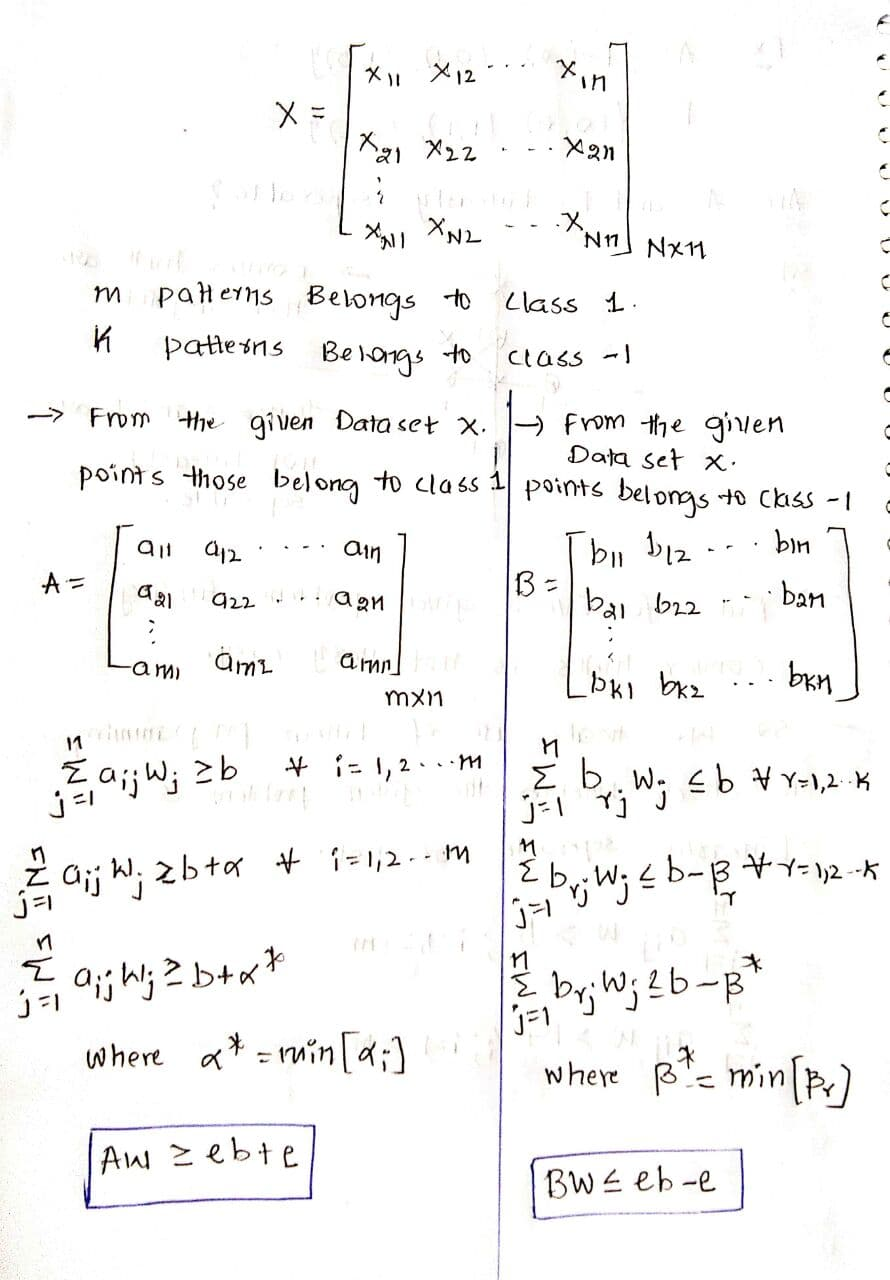 X = [ x₁₁ x₁₂ ... x₁n
x₂₁ x₂₂ ... x₂n
⋮
x_N1 x_N2 ... x_Nn ] N×n
m patterns Belongs to class 1.
K patterns Belongs to class -1
→ From the given Dataset x.
points those belong to class 1
A = [ a₁₁ a₁₂ .... a₁n
a₂₁ a₂₂ .... a₂n
⋮
am₁ am₂ amn ] m×n
n Σ j=1 aij Wj ≥ b ∀ i = 1,2...m
n Σ j=1 aij Wj ≥ b+α ∀ i=1,2...m
n Σ j=1 aij Wj ≥ b+α*
where α* = min[αi]
AW ≥ eb+e
→ From the given
Data set x.
points belongs to class -1
B = [ b₁₁ b₁₂ ... b₁n
b₂₁ b₂₂ ... b₂n
⋮
bK1 bK2 ... bKn ]
n Σ j=1 brj Wj ≤ b ∀ r=1,2..K
n Σ j=1 brj Wj ≤ b-βr ∀ r=1,2--K
n Σ j=1 brj Wj b-β*
where β* = min[βr]
BW ≤ eb-e